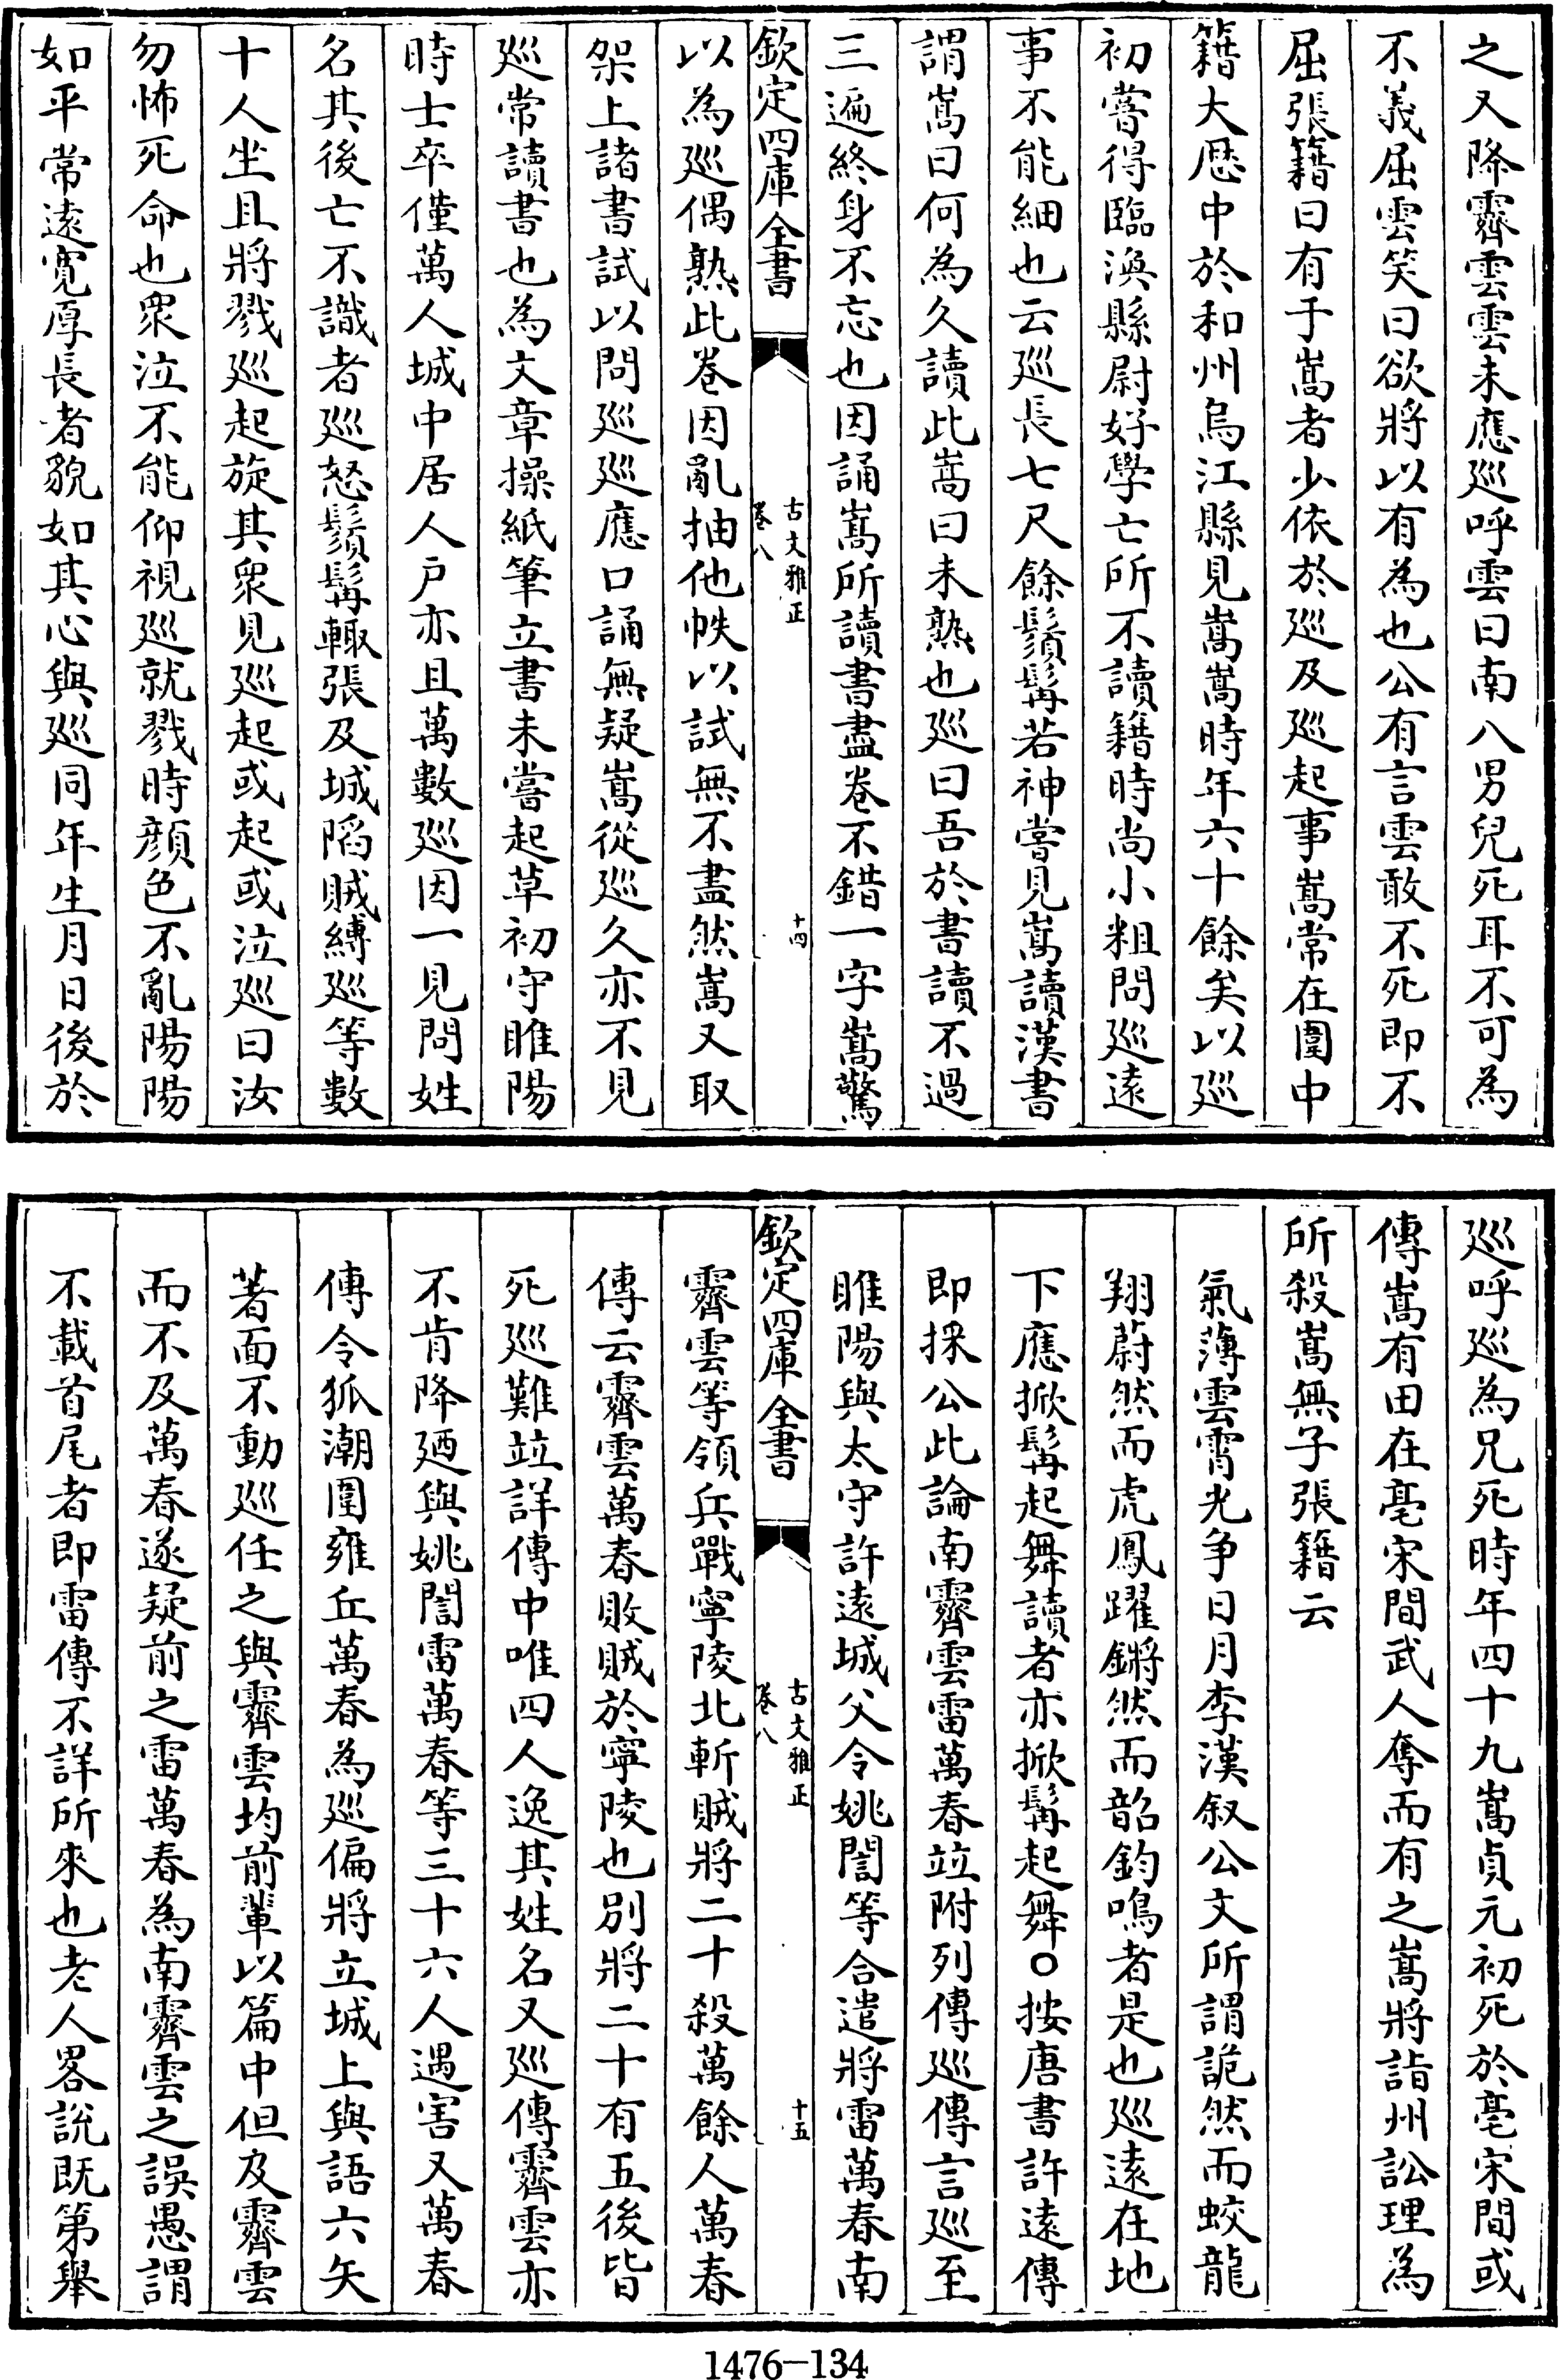 之又降霽雲雲未應巡呼雲曰南八男兒死耳不可為
不義屈雲笑曰欲將以有為也公有言雲敢不死即不
屈張籍曰有于嵩者少依於巡及巡起事嵩常在圍中
籍大厯中於和州烏江縣見嵩嵩時年六十餘矣以巡
初嘗得臨渙縣尉好學亡所不讀籍時尚小粗問巡遠
事不能細也云巡長七尺餘鬚髯若神嘗見嵩讀漢書
謂嵩曰何為久讀此嵩曰未熟也巡曰吾於書讀不過
三遍終身不忘也因誦嵩所讀書盡卷不錯一字嵩驚
欽定四庫全書
古文雅正
卷八
十四
以為巡偶熟此卷因亂抽他帙以試無不盡然嵩又取
架上諸書試以問巡巡應口誦無疑嵩從巡久亦不見
巡常讀書也為文章操紙筆立書未嘗起草初守睢陽
時士卒僅萬人城中居人戶亦且萬數巡因一見問姓
名其後亡不識者巡怒鬚髯輙張及城䧟賊縛巡等數
十人坐且將戮巡起旋其衆見巡起或起或泣巡曰汝
勿怖死命也衆泣不能仰視巡就戮時顔色不亂陽陽
如平常遠寛厚長者貌如其心與巡同年生月日後於
巡呼巡為兄死時年四十九嵩貞元初死於亳宋間或
傳嵩有田在亳宋間武人奪而有之嵩將詣州訟理為
所殺嵩無子張籍云
氣薄雲霄光争日月李漢叙公文所謂詭然而蛟龍
翔蔚然而虎鳳躍鏘然而韶鈞鳴者是也巡遠在地
下應掀髯起舞讀者亦掀髯起舞○按唐書許遠傳
即採公此論南霽雲雷萬春竝附列傳巡傳言巡至
睢陽與太守許遠城父令姚誾等合遣將雷萬春南
欽定四庫全書
古文雅正
卷八
十五
霽雲等領兵戰寧陵北斬賊將二十殺萬餘人萬春
傳云霽雲萬春敗賊於寧陵也別將二十有五後皆
死巡難竝詳傳中唯四人逸其姓名又巡傳霽雲亦
不肯降廼與姚誾雷萬春等三十六人遇害又萬春
傳令狐潮圍雍丘萬春為巡偏將立城上與語六矢
著面不動巡任之與霽雲均前輩以篇中但及霽雲
而不及萬春遂疑前之雷萬春為南霽雲之誤愚謂
不載首尾者即雷傳不詳所來也老人畧說既第舉
1476-134